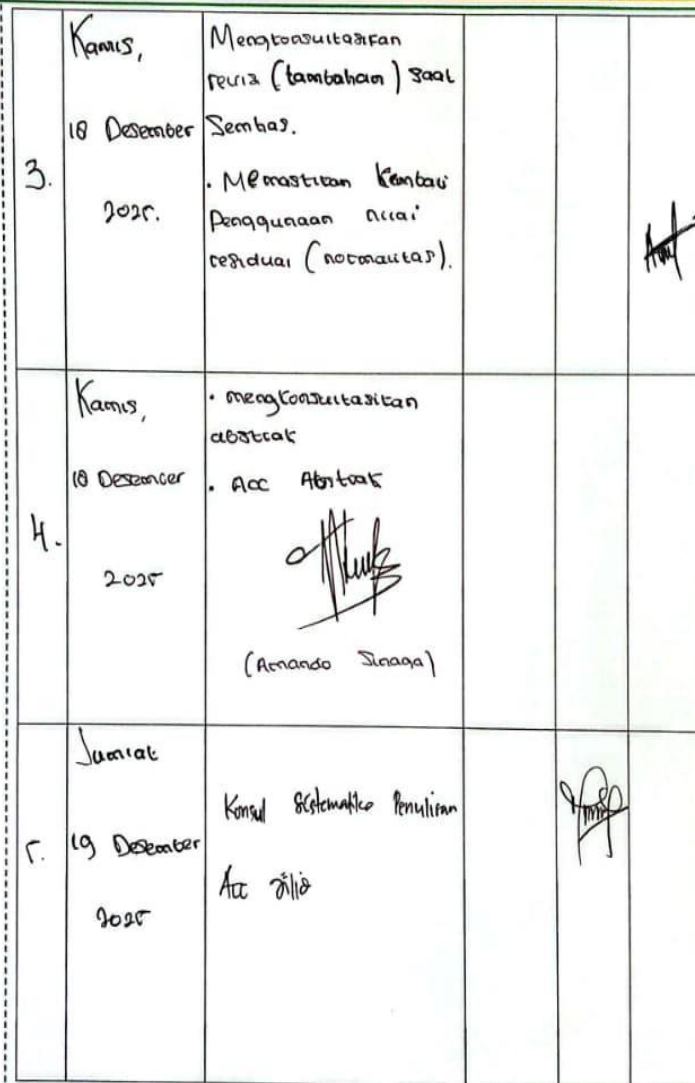 3.
Kamis,
18 Desember
2025.
Mengkonsultasikan
revisi (tambahan) saat
Semhas.
. Memastikan Kembali
Penggunaan nilai
residual (normalitas).
4.
Kamis,
18 Desember
2025
. mengkonsultasikan
abstrak
. Acc Abstrak
(Arnando Sinaga)
5.
Jum'at
19 Desember
2025
Konsul Sistematika Penulisan
Acc